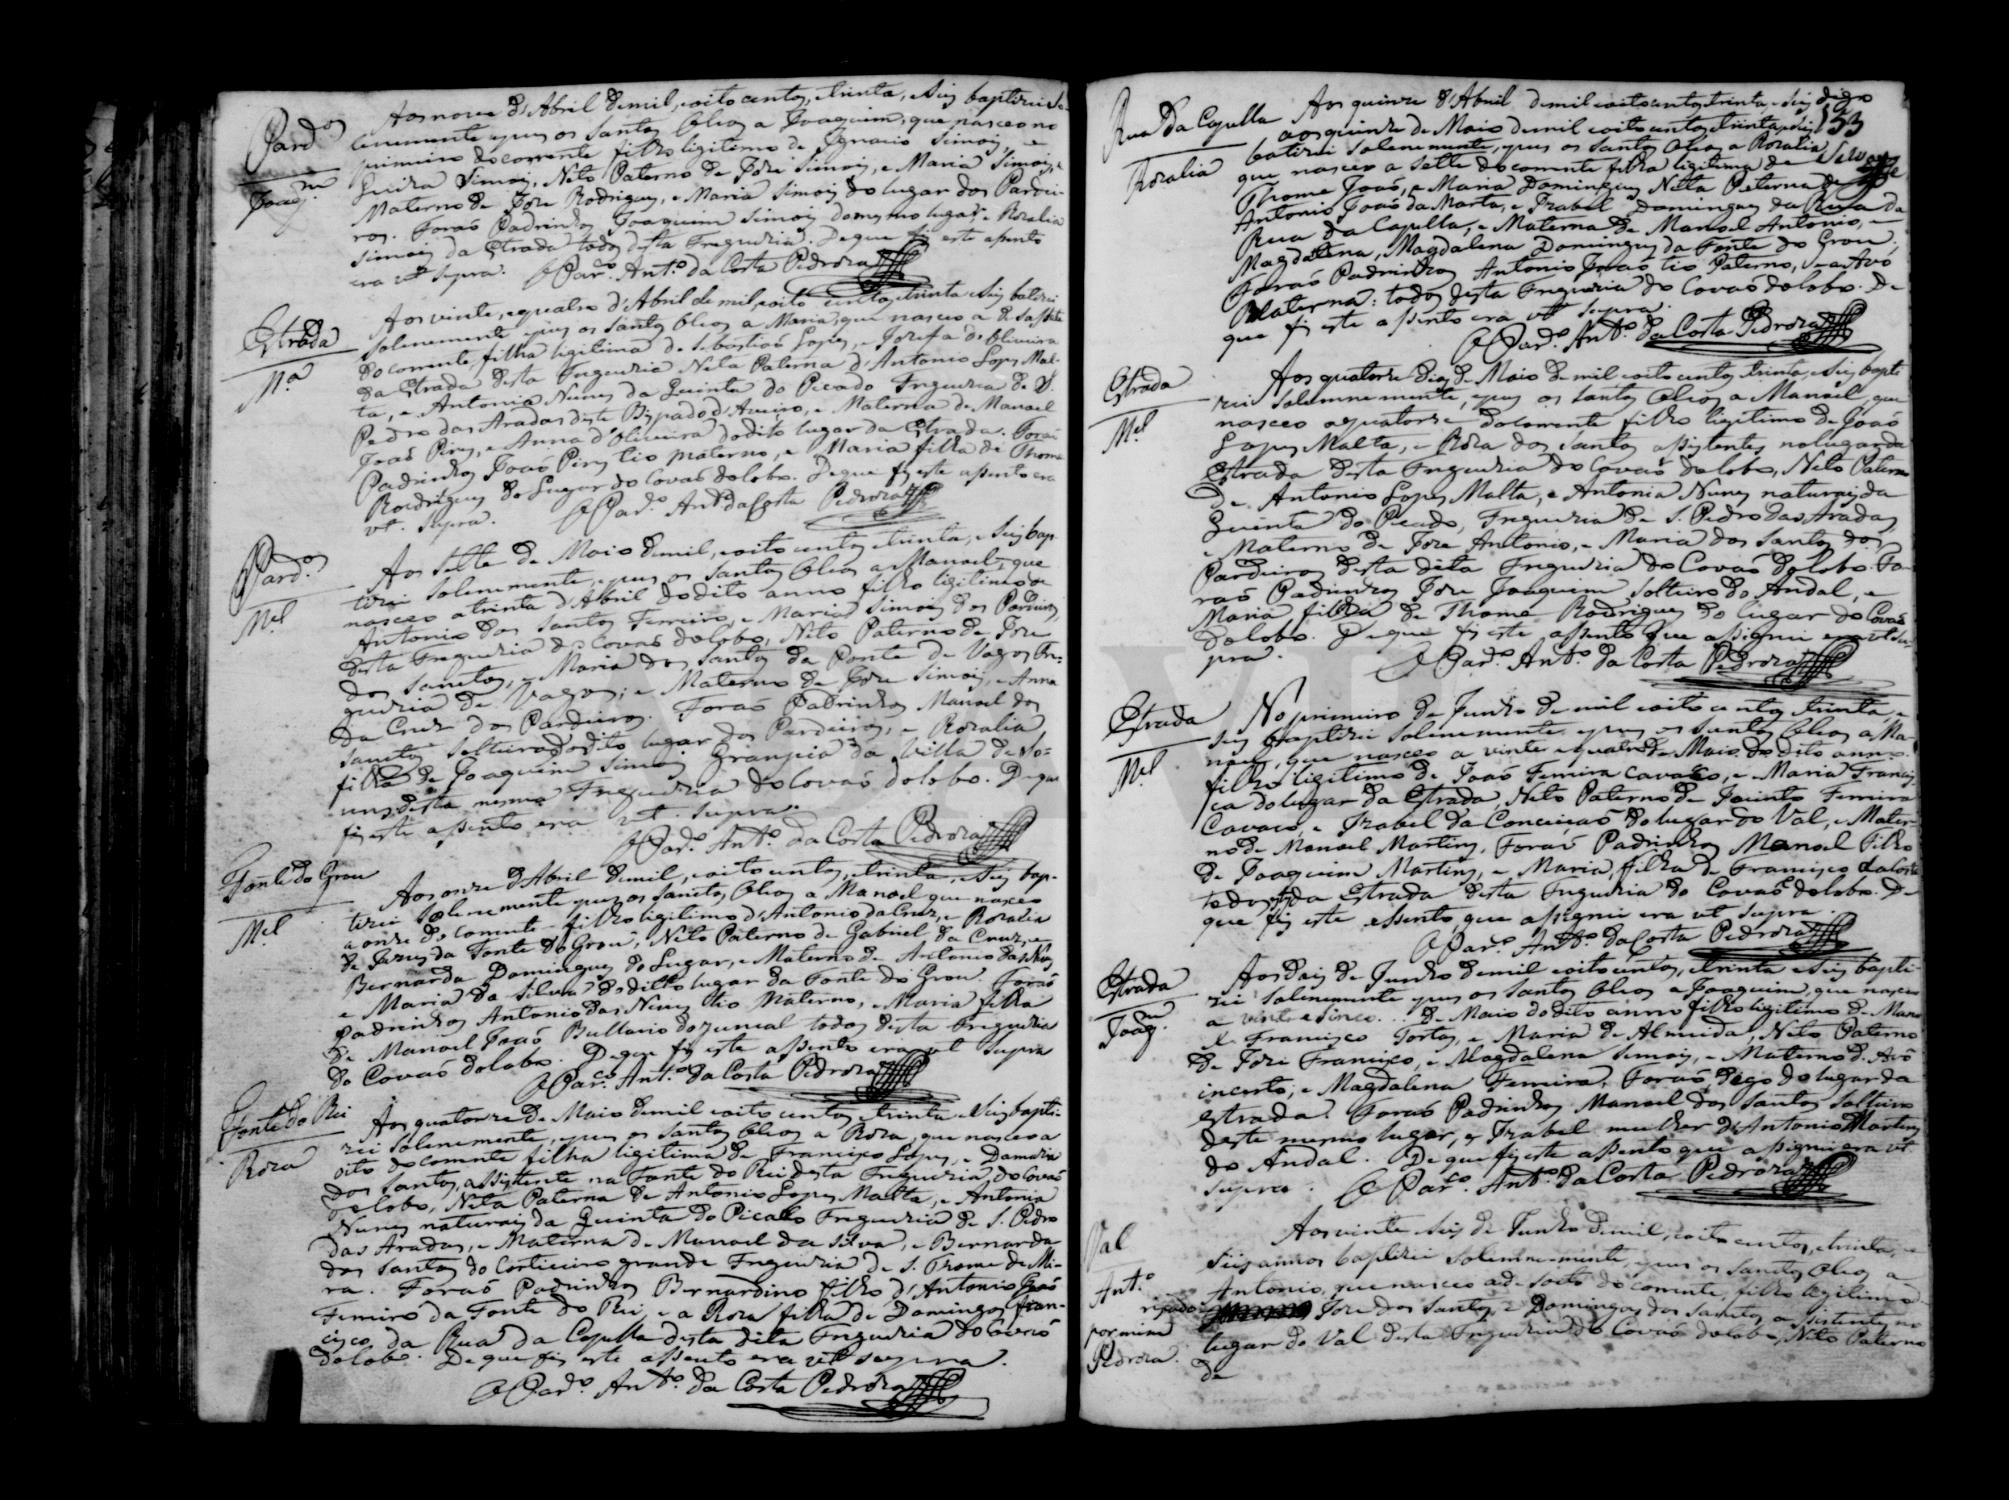 Pard.os
Joaq.m
Aos nove d'Abril de mil, oito centos, e trinta, e Seis baptizei So-
lenemente, e pus os Santos Oleos a Joaquim, que nasceo no
primeiro do corrente filho ligitimo de Ignacio Simois, e
Simois, Neto Paterno de Joze Simois, e Maria Simois, e
Materno de Joze Rodrigues, e Maria Simois do lugar dos Pardei-
ros. Foraõ Padrinhos Joaquim Simois do mesmo lugar e Rozalia
Simois da Estrada todos desta Freguezia. De que fis este assento
era vt Supra. O Par.o Ant.o da Costa Pedroza
Estrada
M.a
Aos vinte, e quatro d'Abril de mil, oito centos, e trinta e Seis batizei
Solenemente, e pus os Santos Oleos a Maria, que nasceo a
do corrente, filha ligitima de Sebastiaõ Lopes, e Jozefa de Oliveira
da Estrada desta Freguezia Neta Paterna d'Antonio Lopes Mal-
ta, e Antonia Nunes da Quinta do Picado Freguezia de S.
Pedro das Aradas deste Bispado d'Aveiro, e Materna de Manoel
Joaõ Pires, e Anna d'Oliveira do dito lugar da Estrada. Foraõ
Padrinhos Joaõ Pires tio materno, e Maria filha de Thome
Rodrigues do Lugar do Covaõ do lobo. De que fis este assento era
vt. Supra. O Par.o Ant.o da Costa Pedroza
Pard.os
M.el
Aos Sette de Maio de mil, oito centos, e trinta, e Seis bap-
tizei Solenemente, e pus os Santos Oleos a Manoel, que
nasceo a trinta d'Abril do dito anno filho ligitimo de
Antonio dos Santos Ferreira, e Maria Simois dos Pardeiros,
desta Freguezia do Covaõ do lobo, Neto Paterno de Joze
dos Santos, e Maria dos Santos da Ponte de Vagos Fre-
guezia de Vagos; e Materno de Joze Simois, e Anna
da Cruz dos Pardeiros. Foraõ Padrinhos Manoel dos
Santos Solteiro do dito lugar dos Pardeiros, e Rozalia
filha de Joaquim Simois Granjeia da Villa de So-
desta mesma Freguezia do Covaõ do lobo. De que
fis este assento era vt. Supra.
O Par.o Ant.o da Costa Pedroza
Fonte do Grou
M.el
Aos onze d'Abril de mil, oito centos, e trinta, e Seis bap-
tizei Solenemente e pus os Santos Oleos a Manoel que nasceo
a onze do corrente filho ligitimo d'Antonio da Cruz, e Rozalia
de Jezus da Fonte do Grou, Neto Paterno de Gabriel da Cruz, e
Bernarda Domingues do Lugar, e Materno de Antonio das Neves
e Maria da Silva do ditto lugar da Fonte do Grou. Foraõ
Padrinhos Antonio das Neves tio Materno, e Maria filha
de Manoel Joaõ do Juncal todos desta Freguezia
do Covaõ do lobo. De que fis este assento era vt Supra
O Par.o Ant.o da Costa Pedroza
Fonte do Rei
Roza
Aos quatorze de Maio de mil oito centos, e trinta e Seis bapti-
zei Solenemente, e pus os Santos Oleos a Roza, que nasceo a
oito do corrente filha ligitima de Francisco Lopes, e Damazia
dos Santos, assistente na Fonte do Rei desta Freguezia do Covaõ
do lobo, Neta Paterna de Antonio Lopes Malta, e Antonia
Nunes naturais da Quinta do Picado Freguezia de S. Pedro
das Aradas, e Materna de Manoel da Silva, e Bernarda
dos Santos do Corticeiro grande Freguezia de S. Thome de Mi-
ra. Foraõ Padrinhos Bernardino filho d'Antonio Joaõ
Ferreira da Fonte do Rei, e a Roza filha de Domingos Fran-
cisco, da Rua da Capella desta dita Freguezia do Covaõ
do lobo. De que fis este assento era vt supra.
O Par.o Ant.o da Costa Pedroza
133
Rua da Capella
Rozalia
Aos quinze d'Abril de mil oito centos, e trinta, e Seis digo
aos quinze de Maio de mil oito centos, e trinta, e Seis
batizei Solenemente, e pus os Santos Oleos a Rozalia,
que nasceo a sette do corrente filha ligitima de
Thome Joaõ, e Maria Domingues Neta Paterna de
Antonio Joaõ da Marta, e Izabel Domingues da
Rua da Capella, e Materna de Manoel Antonio, e
Magdalena, Magdalena Domingues da Fonte do Grou.
Foraõ Padrinhos Antonio Joaõ tio Paterno, e a Avó
Materna: todos desta Freguezia do Covaõ do lobo. De
que fis este assento era vt supra.
O Par.o Ant.o da Costa Pedroza
Estrada
M.el
Aos quatorze dias de Maio de mil oito centos, e trinta, e Seis bapti-
zei Solemnemente, e pus os Santos Oleos a Manoel, que
nasceo a quatorze do corrente filho ligitimo de Joaõ
Lopes Malta, e Roza dos Santos assistentes no lugar da
Estrada desta Freguezia do Covaõ do lobo, Neto Paterno
de Antonio Lopes Malta, e Antonia Nunes naturais da
Quinta do Picado, Freguezia de S. Pedro das Aradas
e Materno de Joze Antonio, e Maria dos Santos dos
Pardeiros desta dita Freguezia do Covaõ do lobo. Fo-
raõ Padrinhos Joze Joaquim Solteiro do Andal, e
Maria filha de Thome Rodrigues do lugar do Covaõ
do lobo. De que fis este assento que assignei era vt Su-
pra.
O Par.o Ant.o da Costa Pedroza
Estrada
M.el
No primeiro de Junho de mil oito centos, e trinta, e
Seis baptizei Solenemente e pus os Santos Oleos a Ma-
noel, que nasceo a vinte e quatro de Maio do dito anno
filho ligitimo de Joaõ Ferreira Cavaco, e Maria Francis-
ca do lugar da Estrada, Neto Paterno de Jacinto Ferreira
Cavaco, e Izabel da Conceiçaõ do lugar do Val, e Mater-
no de Manoel Martins, Foraõ Padrinhos Manoel Filho
de Joaquim Martins, e Maria, filha de Francisco da Costa
todos da Estrada desta Freguezia do Covaõ do lobo. De
que fis este assento, que assignei era vt supra.
O Par.o Ant.o da Costa Pedroza
Estrada
Joaq.m
Aos dois de Junho de mil oito centos, e trinta e Seis bapti-
zei Solenemente e pus os Santos Oleos a Joaquim, que nasceo
a vinte e sinco... de Maio do dito anno filho ligitimo de Mano-
el Francisco Tortas, e Maria de Almeida, Neto Paterno
de Joze Francisco, e Magdalena Simois, e Materno d'Avô
incerto, e Magdalena Ferreira, Foraõ, digo do lugar da
estrada. Foraõ Padrinhos Manoel dos Santos Solteiro
deste mesmo lugar, e Izabel mulher d'Antonio Martins
do Andal. De que fis este assento que assignei era vt
supra. O Par.o Ant.o da Costa Pedroza
Val
Ant.o
por mim
Pedroza.
Aos vinte Seis de Junho de mil, oito centos, e trinta, e
Seis annos baptizei Solemnemente, e pus os Santos Oleos a
Antonio, que nasceo a dezoito do corrente, filho legitimo d
Joze dos Santos, e Domingas dos Santos assistentes no
lugar do Val desta Freguezia do Covaõ do lobo, Neto Paterno
de